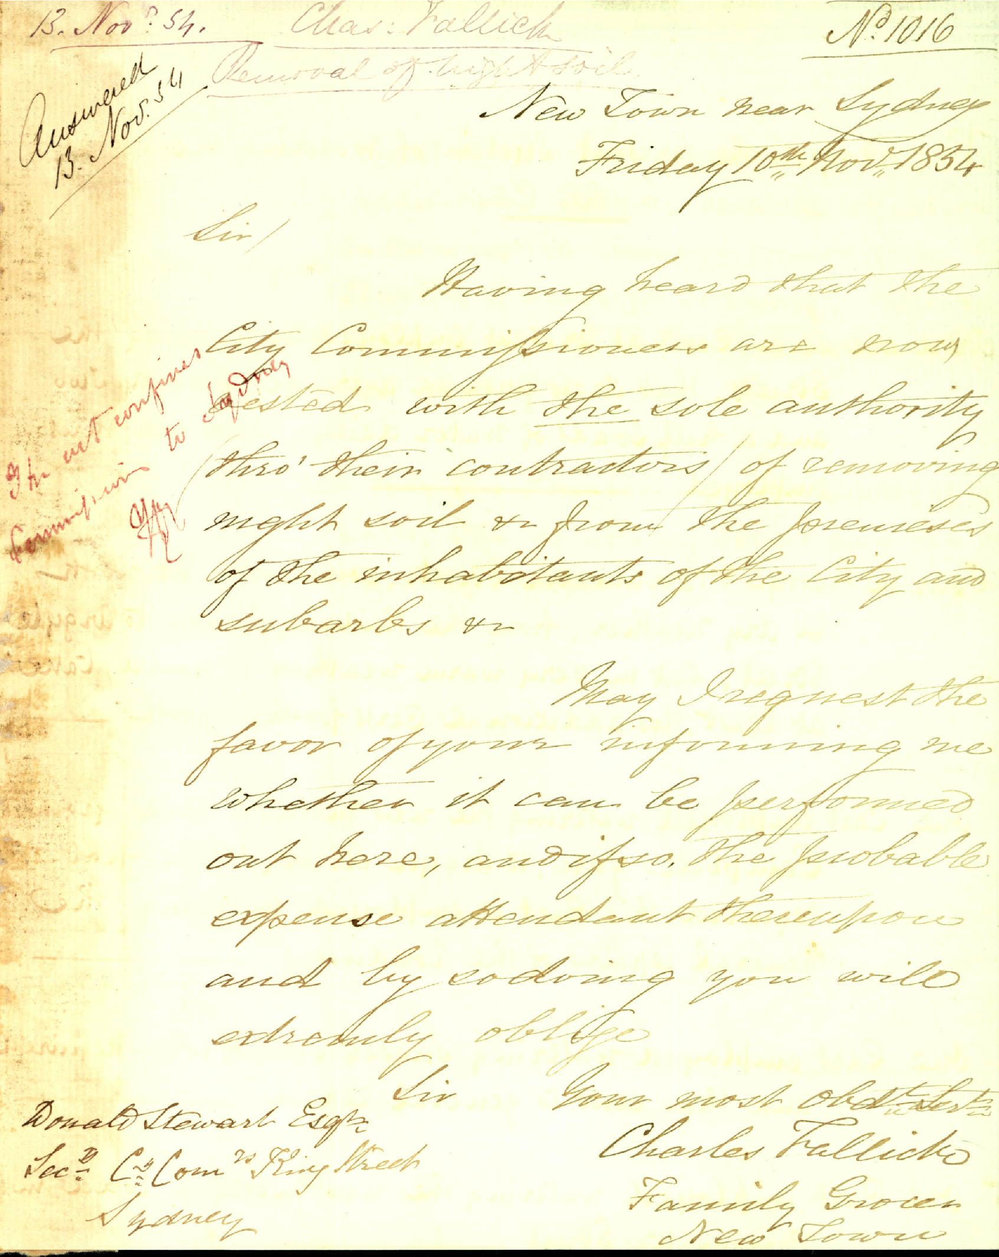 13. Novr. 54.
Chas: Fallick
No 1016
Removal of night soil
Answered
13. Nov. 54
New Town near Sydney
Friday 10th Novr 1854
Sir/
Having heard that the
City Commissioners are now
vested with the sole authority
(thro' their contractors) of removing
night soil &c from the premises
of the inhabitants of the City and
subarbs &c
The act confines
Commission to Sydney
May I request the
favor of your informing me
whether it can be performed
out here, and if so, the probable
expense attendant thereupon
and by so doing you will
extremly oblige
Sir Your most Obdt Servt
Charles Fallick
Family Grocer
New Town
Donald Stewart Esqre
Secy Cy Comrs King Street
Sydney